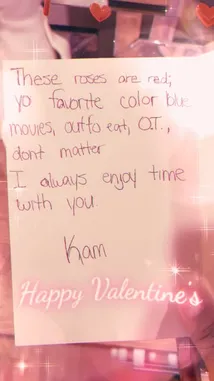 These roses are red;
yo favorite color blue
movies, out to eat, O.T.,
dont matter
I always enjoy time
with you.
Kam
Happy Valentine's